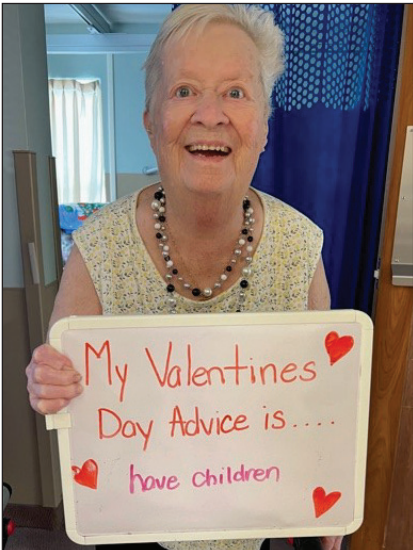 My Valentines
Day Advice is....
have children